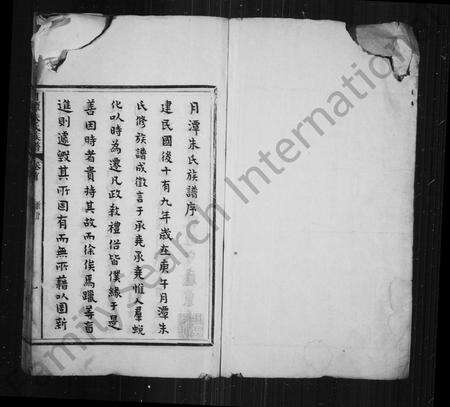 月潭朱氏族譜序
建民國後十有九年歲在庚午月潭朱
氏修族譜成徵言于承堯承堯惟人羣蛻
化以時為遷凡政教禮俗皆僕緣于是
善因時者貴持其故而徐俟焉躐等奮
進則遽毀其所固有而無所藉以圖新
FamilySearch International